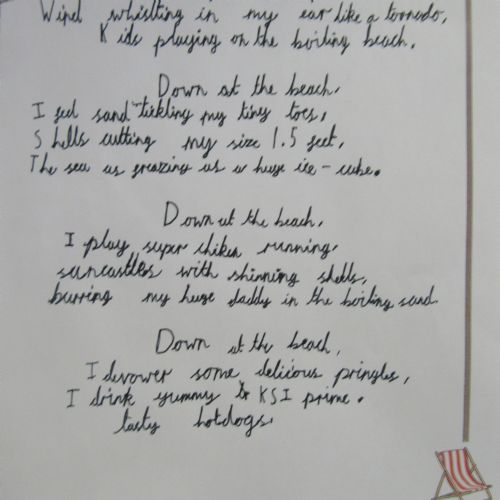 Wind whistling in my ear like a toornado,
Kids playing on the boiling beach.
Down at the beach,
I feel sand tickling my tiny toes,
Shells cutting my size 1.5 feet,
The sea as freazing as a huge ice-cube.
Down at the beach,
I play super chiken running,
suncastles with shinning shells,
burring my huge daddy in the boiling sand.
Down at the beach,
I devower some delicious pringles,
I drink yummy KSI prime.
tasty hotdogs.